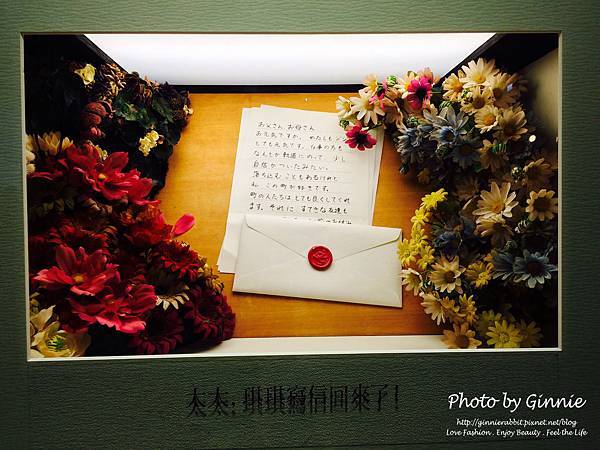 お父さん お母さん
お元気ですか。わたしもジジも
とても元気です。仕事の方も
なんとか軌道にのって、少し
自信がついたみたい。
落ち込むこともあるけれど
私、この町が好きです。
町の人たちはとても良くしてくれ
ます。それに すてきな友達も
太太；琪琪寫信回來了！
Photo by Ginnie
http://ginnierabbit.pixnet.net/blog
Love Fashion . Enjoy Beauty . Feel the Life